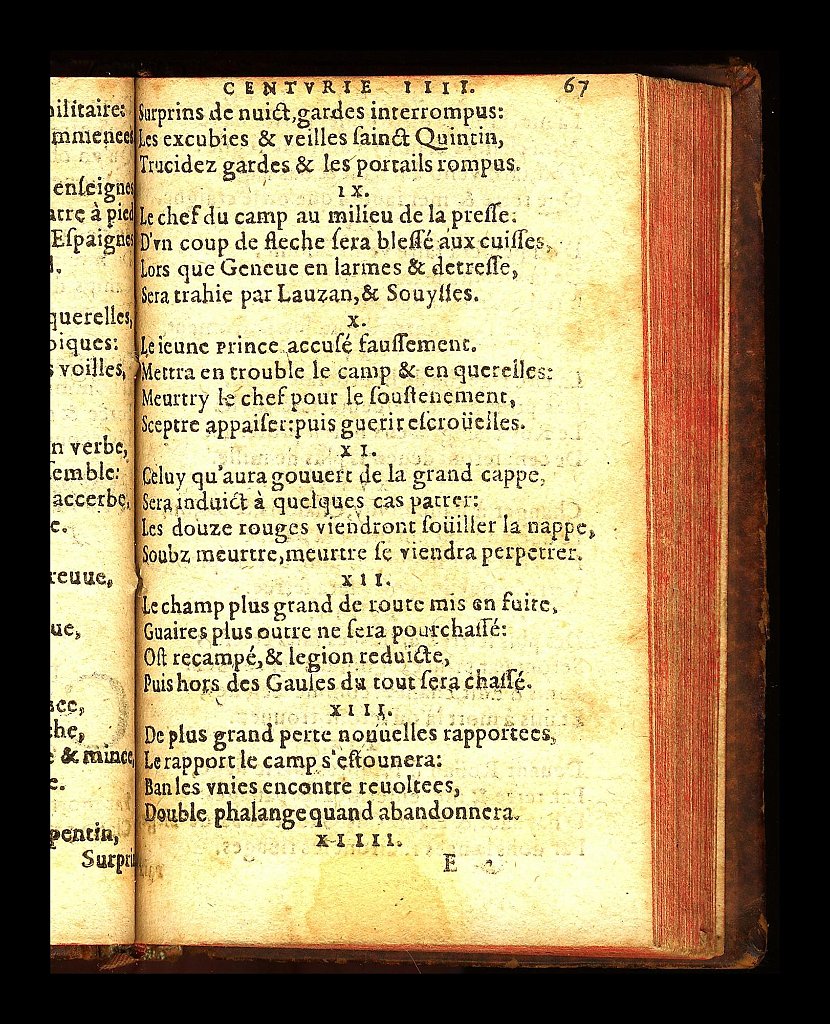 ilitaire:
mmencee
enſeigne
atre à pied
Eſpaigne
querelles,
piques:
voilles,
n verbe,
ſemble:
accerbe,
e.
reuue,
ue,
ee,
he,
& mince,
e.
pentin,
Surpri
CENTVRIE IIII. 67
Surprins de nuict, gardes interrompus:
Les excubies & veilles ſainct Quintin,
Trucidez gardes & les portails rompus.
IX.
Le chef du camp au milieu de la preſſe:
D'vn coup de fleche ſera bleſſé aux cuiſſes,
Lors que Geneue en larmes & detreſſe,
Sera trahie par Lauzan, & Souyſſes.
X.
Le ieune Prince accuſé fauſſement.
Mettra en trouble le camp & en querelles:
Meurtry le chef pour le ſouſtenement,
Sceptre appaiſer: puis guerir eſcroüelles.
XI.
Celuy qu'aura gouuert de la grand cappe,
Sera induict à quelques cas patrer:
Les douze rouges viendront ſoüiller la nappe,
Soubz meurtre, meurtre ſe viendra perpetrer.
XII.
Le champ plus grand de route mis en fuite,
Guaires plus outre ne ſera pourchaſſé:
Oſt recampé, & legion reduicte,
Puis hors des Gaules du tout ſera chaſſé.
XIII.
De plus grand perte nouuelles rapportees,
Le rapport le camp s'eſtounera:
Ban les vnies encontre reuoltees,
Double phalange quand abandonnera.
XIIII.
E